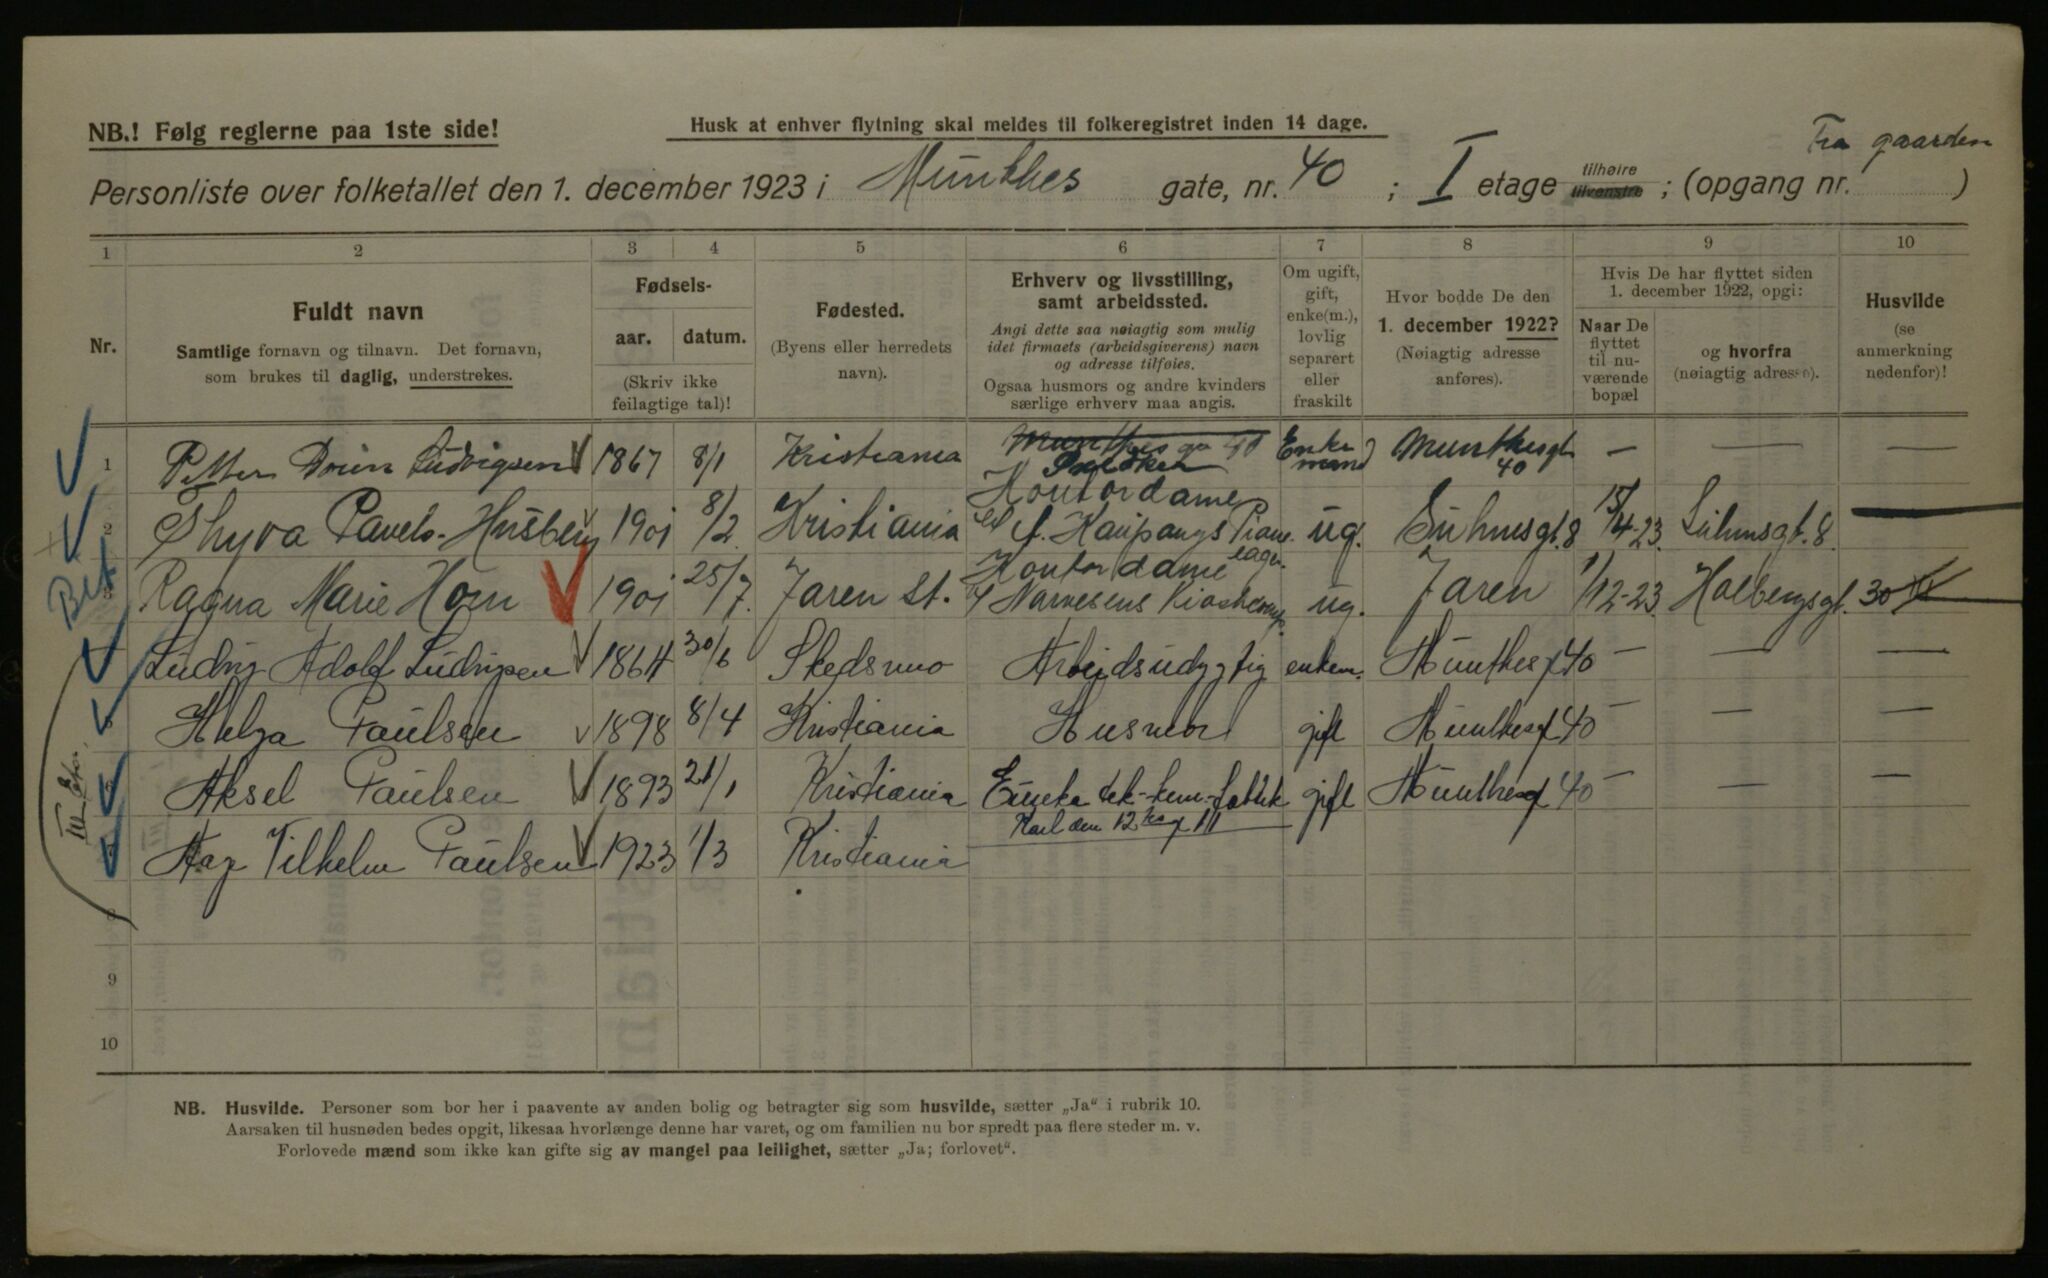 NB.! Følg reglerne paa 1ste side!
Husk at enhver flytning skal meldes til folkeregistret inden 14 dage.
Fra gaarden
Personliste over folketallet den 1. december 1923 i Munthes gate, nr. 40 ; I etage tilhøire tilvenstre ; (opgang nr. )
1 2 3 4 5 6 7 8 9 10
Nr.
Fuldt navn
Samtlige fornavn og tilnavn. Det fornavn,
som brukes til daglig, understrekes.
Fødsels-
aar. datum.
(Skriv ikke
feilagtige tal)!
Fødested.
(Byens eller herredets
navn).
Erhverv og livsstilling,
samt arbeidssted.
Angi dette saa nøiagtig som mulig
idet firmaets (arbeidsgiverens) navn
og adresse tilføies.
Ogsaa husmors og andre kvinders
særlige erhverv maa angis.
Om ugift,
gift,
enke(m.),
lovlig
separert
eller
fraskilt
Hvor bodde De den
1. december 1922?
(Nøiagtig adresse
anføres).
Hvis De har flyttet siden
1. december 1922, opgi:
Naar De
flyttet
til nu-
værende
bopæl
og hvorfra
(nøiagtig adresse).
Husvilde
(se
anmerkning
nedenfor)!
1 Petter Ludvigsen 1867 8/1 Kristiania Munthes ga 40 Enkemand Munthesgt 40 — — —
2 Thyra Pavels-Husberg 1901 8/2 Kristiania Kontordame f. Kaupangs Pianolager. ug. Suhmsgt. 8 15/4-23. Suhmsgt. 8. —
3 Ragna Marie Horn 1901 25/7. Jaren st. Kontordame Narvesens Kioskkomp. ug. Jaren 1/12-23 Holbergsgt. 30
Ludvig Adolf Ludvigsen 1864 30/6 Skedsmo Arbeidsudygtig enkem. Munthesg 40 — — —
Helga Paulsen 1898 8/4 Kristiania Husmor gift Munthesgt 40 — — —
Aksel Paulsen 1893 21/1 Kristiania Eureka tek-kem-fabrik gift Munthesgt 40 — — —
Karl den 12 sg 111
Aage Vilhelm Paulsen 1923 1/3 Kristiania
Bet
III Etg.
8
9
10
NB. Husvilde. Personer som bor her i paavente av anden bolig og betragter sig som husvilde, sætter „Ja“ i rubrik 10.
Aarsaken til husnøden bedes opgit, likesaa hvorlænge denne har varet, og om familien nu bor spredt paa flere steder m. v.
Forlovede mænd som ikke kan gifte sig av mangel paa leilighet, sætter „Ja; forlovet“.